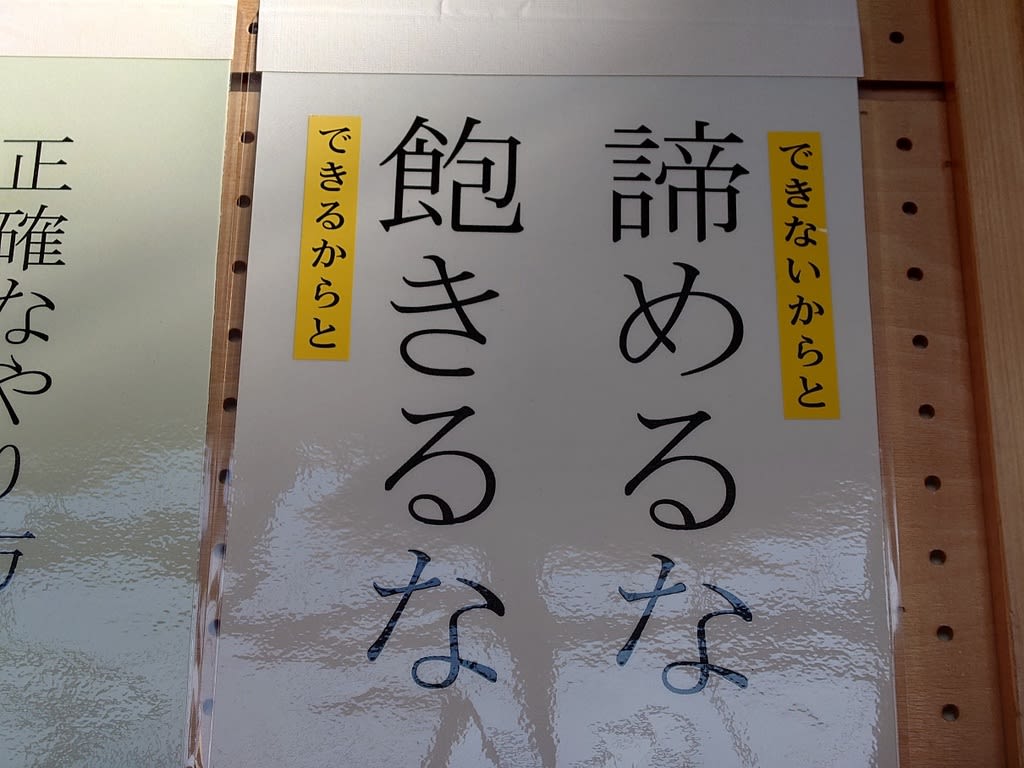 できないからと
諦めるな
できるからと
飽きるな
正確なやり方